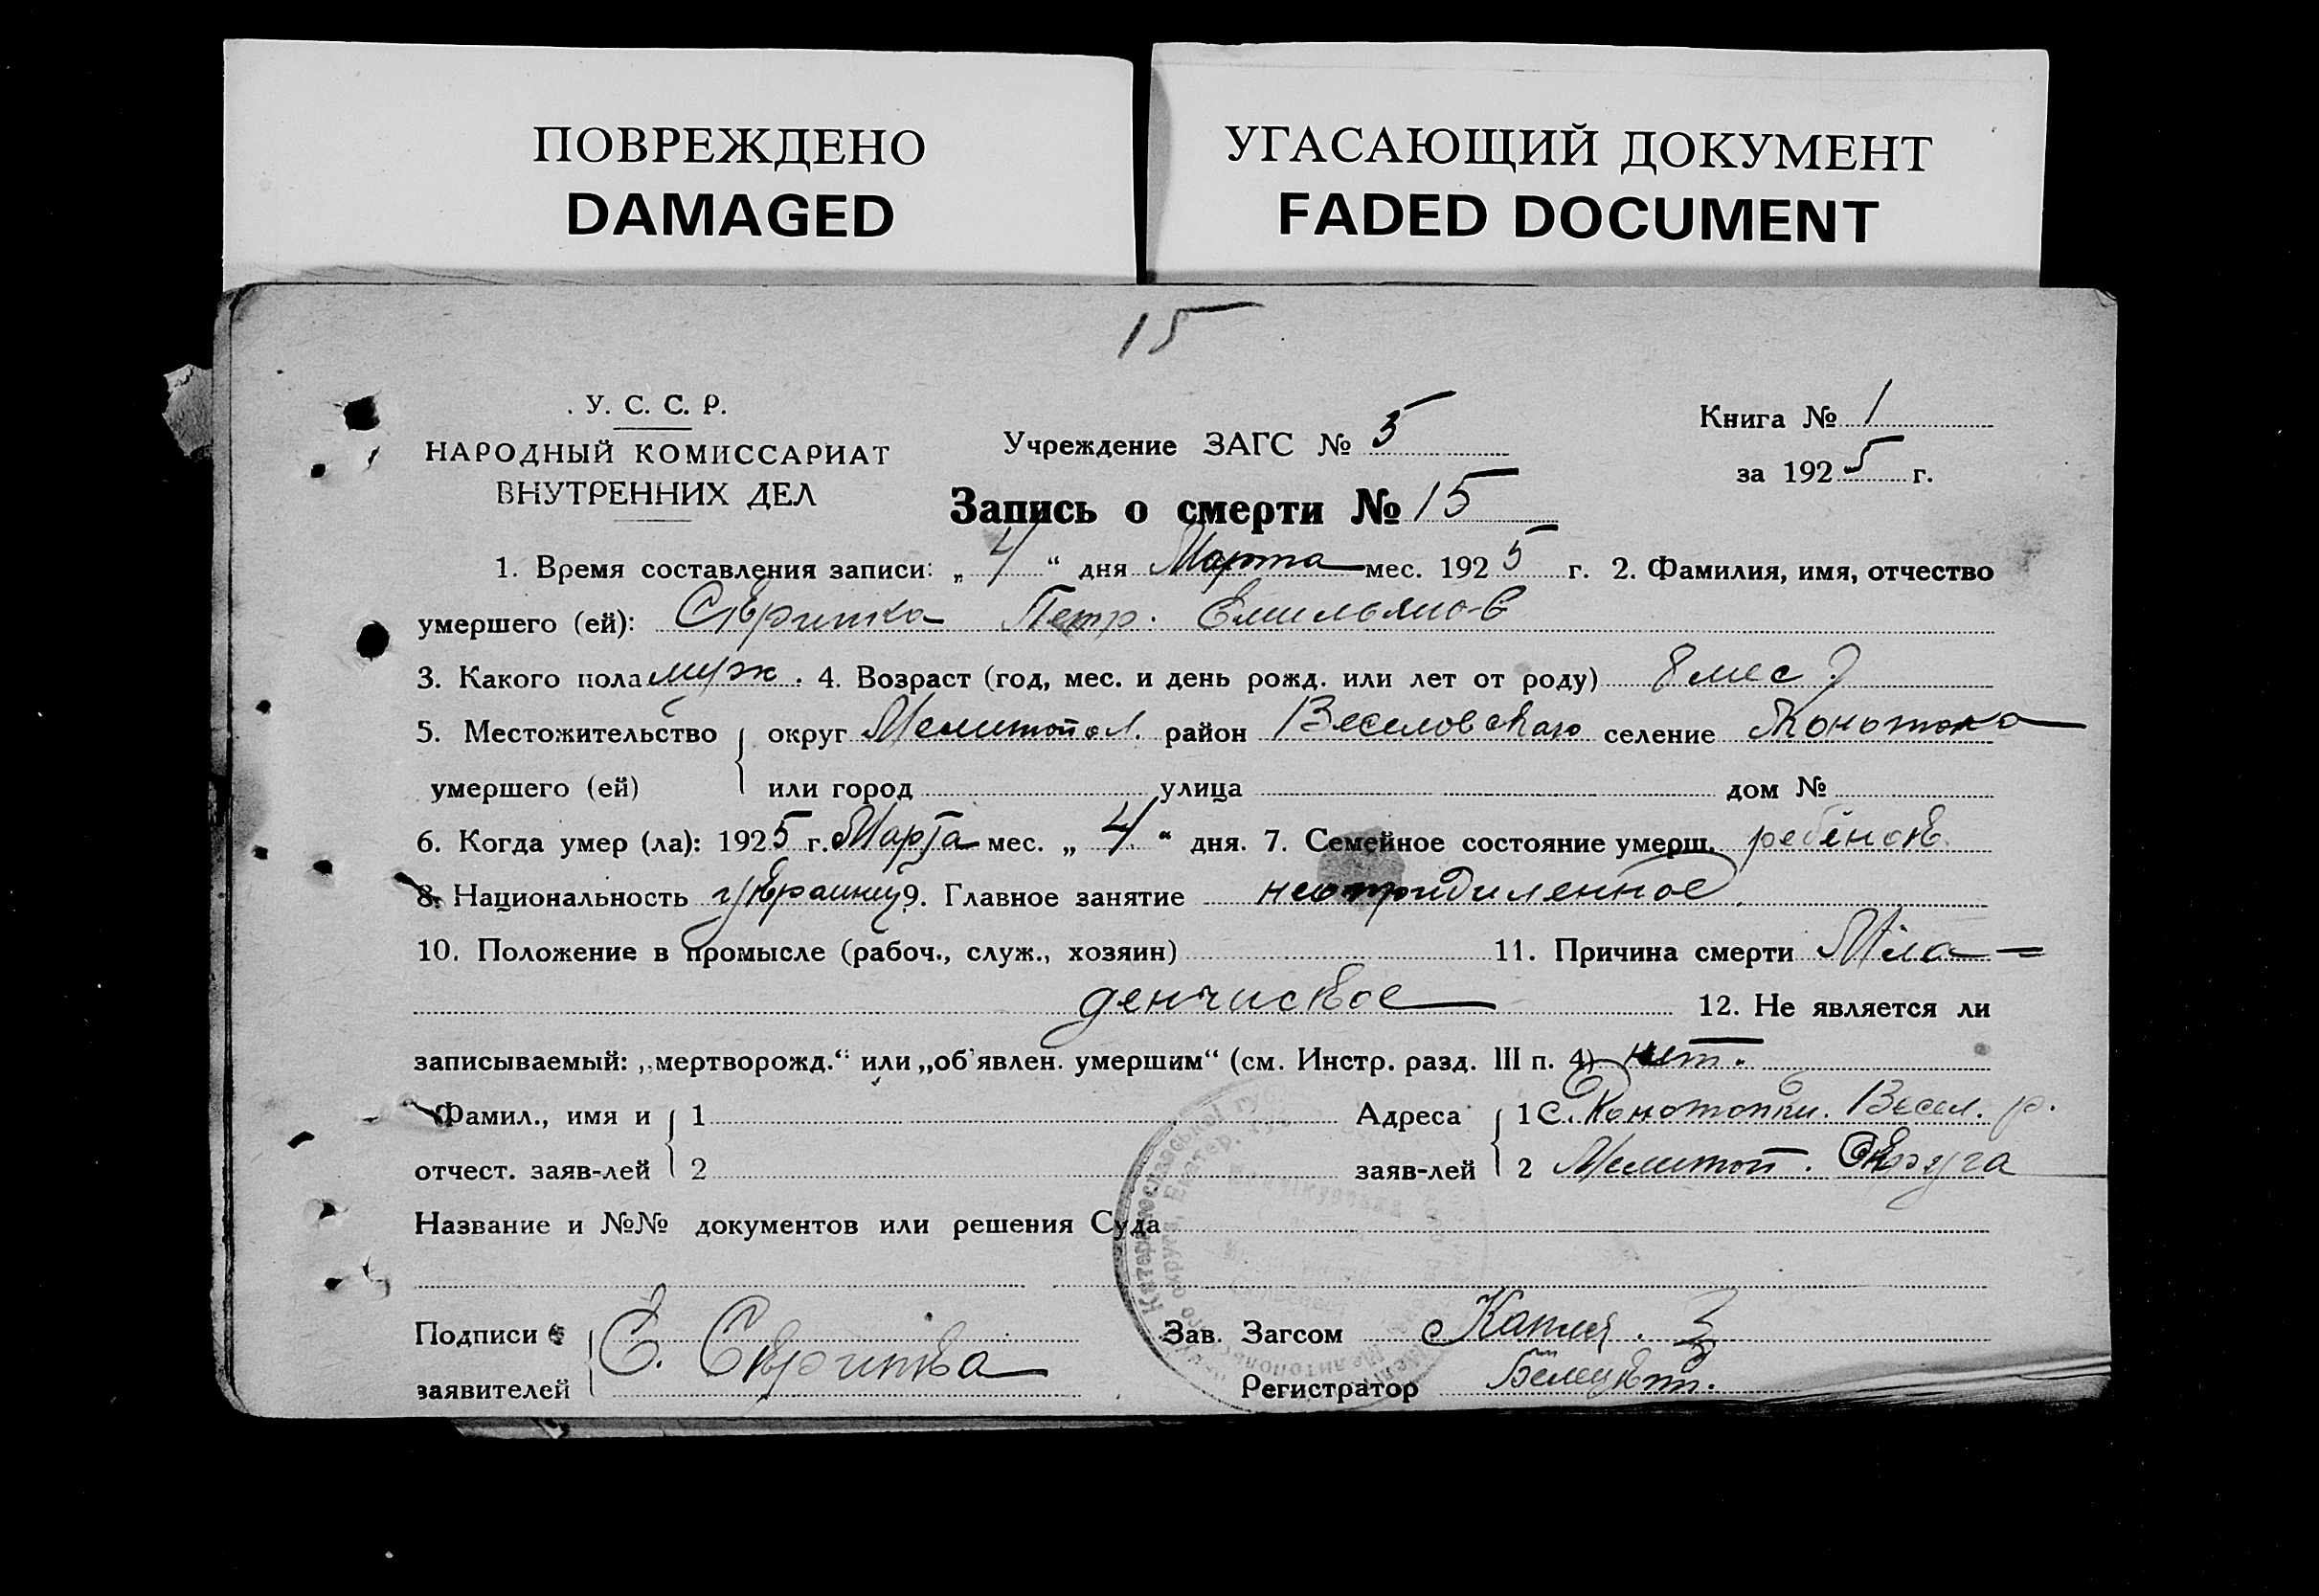 ПОВРЕЖДЕНО
DAMAGED
УГАСАЮЩИЙ ДОКУМЕНТ
FADED DOCUMENT
15
У. С. С. Р.
НАРОДНЫЙ КОМИССАРИАТ
ВНУТРЕННИХ ДЕЛ
Учреждение ЗАГС № 5
Книга № 1
за 1925 г.
Запись о смерти № 15
1. Время составления записи: „4“ дня Марта мес. 1925 г. 2. Фамилия, имя, отчество
умершего (ей): Скрипка Петр. Емильянов
3. Какого пола муж. 4. Возраст (год, мес. и день рожд. или лет от роду) 8 мес
5. Местожительство округ Мелитопол. район Веселовского селение
умершего (ей) или город улица дом №
6. Когда умер (ла): 1925 г. Марта мес. „4“ дня. 7. Семейное состояние умерш. ребёнок.
8. Национальность украинец 9. Главное занятие
10. Положение в промысле (рабоч., служ., хозяин) 11. Причина смерти Мла=
денчиское 12. Не является ли
записываемый: „мертворожд.“ или „об'явлен. умершим“ (см. Инстр. разд. III п. 4) нет.
Фамил., имя и 1 Адреса 1 С. Весел. р.
отчест. заяв-лей 2 заяв-лей 2 Мелитоп. Округа
Название и №№ документов или решения Суда
Подписи Е. Скрипка Зав. Загсом
заявителей Регистратор